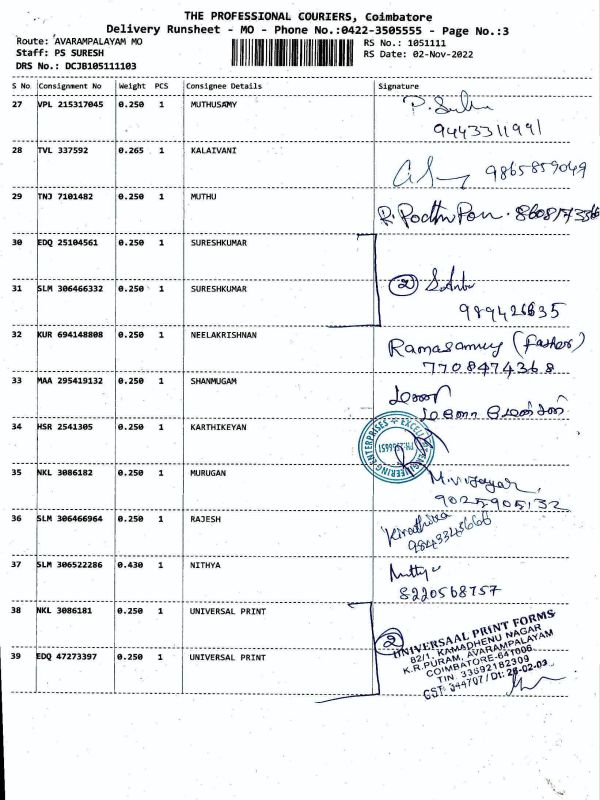 THE PROFESSIONAL COURIERS, Coimbatore
Delivery Runsheet - MO - Phone No.:0422-3505555 - Page No.:3
Route: AVARAMPALAYAM MO
Staff: PS SURESH
DRS No.: DCJB105111103
RS No.: 1051111
RS Date: 02-Nov-2022
S No. Consignment No Weight PCS Consignee Details Signature
27 VPL 215317045 0.250 1 MUTHUSAMY
9443311991
28 TVL 337592 0.265 1 KALAIVANI 9865859049
29 TNJ 7101482 0.250 1 MUTHU
30 EDQ 25104561 0.250 1 SURESHKUMAR
31 SLM 306466332 0.250 1 SURESHKUMAR 2
32 KUR 694148808 0.250 1 NEELAKRISHNAN Ramasamy (Father)
7708474368
33 MAA 295419132 0.250 1 SHANMUGAM
34 HSR 2541305 0.250 1 KARTHIKEYAN
35 NKL 3086182 0.250 1 MURUGAN
9025905132
36 SLM 306466964 0.250 1 RAJESH
37 SLM 306522286 0.430 1 NITHYA
8220568757
38 NKL 3086181 0.250 1 UNIVERSAL PRINT 2
UNIVERSAAL PRINT FORMS
82/1, KAMADHENU NAGAR
K.R.PURAM, AVARAMPALAYAM
COIMBATORE-641006
TIN. 33592182309
CST: 344707 / Dt: 28-02-03
39 EDQ 47273397 0.250 1 UNIVERSAL PRINT